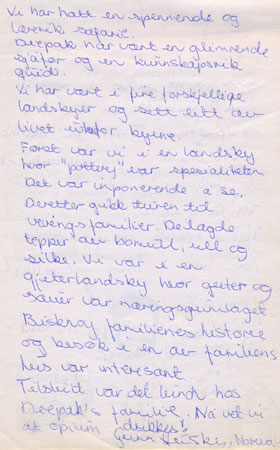 Vi har hatt en spennende og
lærerik safarie.
Deepak har vært en glimrende
sjåfør og en kunnskapsrik
guid.
Vi har vært i fire forskjellige
landsbyer og sett litt av
livet utafor byene.
Først var vi i en landsby
hvor "pottery" var spesialiteten
Det var inponerende å se.
Deretter gikk turen til
vevingsfamilier. De lagde
tepper av bomull, ull og
silke. Vi var i en
gjeterlandsby hvor geiter og
sauer var næringsgrunlaget
Bishnoy familienes historie
og besøk i en av familiens
hus var interesant
Tilslutt var det lunch hos
Deepak's familie. Nå vet vi
at opium drikkes!
Gunn